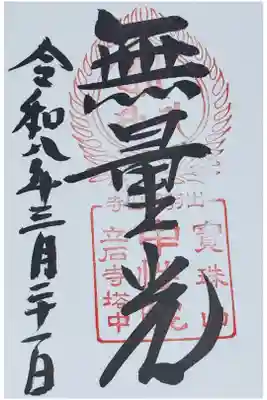 無量光
寶珠山
立石寺塔中
令和八年三月二十一日